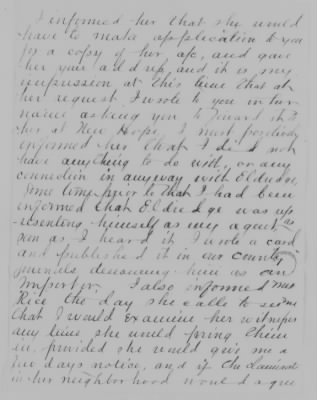 I informed her that she would
have to make application to you
for a copy of her a/c, and gave
her your address, and it is my
impression at this time that at
her request I wrote to you in her
name asking you to forward it to
her at New Hope, I most positively
informed her that I did not
have anything to do with, or any
connection in anyway with Eldredge.
Some time prior to that I had been
informed that Eldredge was rep-
resenting himself as my agent, as
soon as I heard it, I wrote a card
and published it in our county
journals denouncing him as an
Impostor. I also informed Mrs
Rice the day she calls to see me
that I would examine her witnesses
any time she would bring them
in, provided she would give me a
few days notice, and if the claimants
in her neighborhood would agree